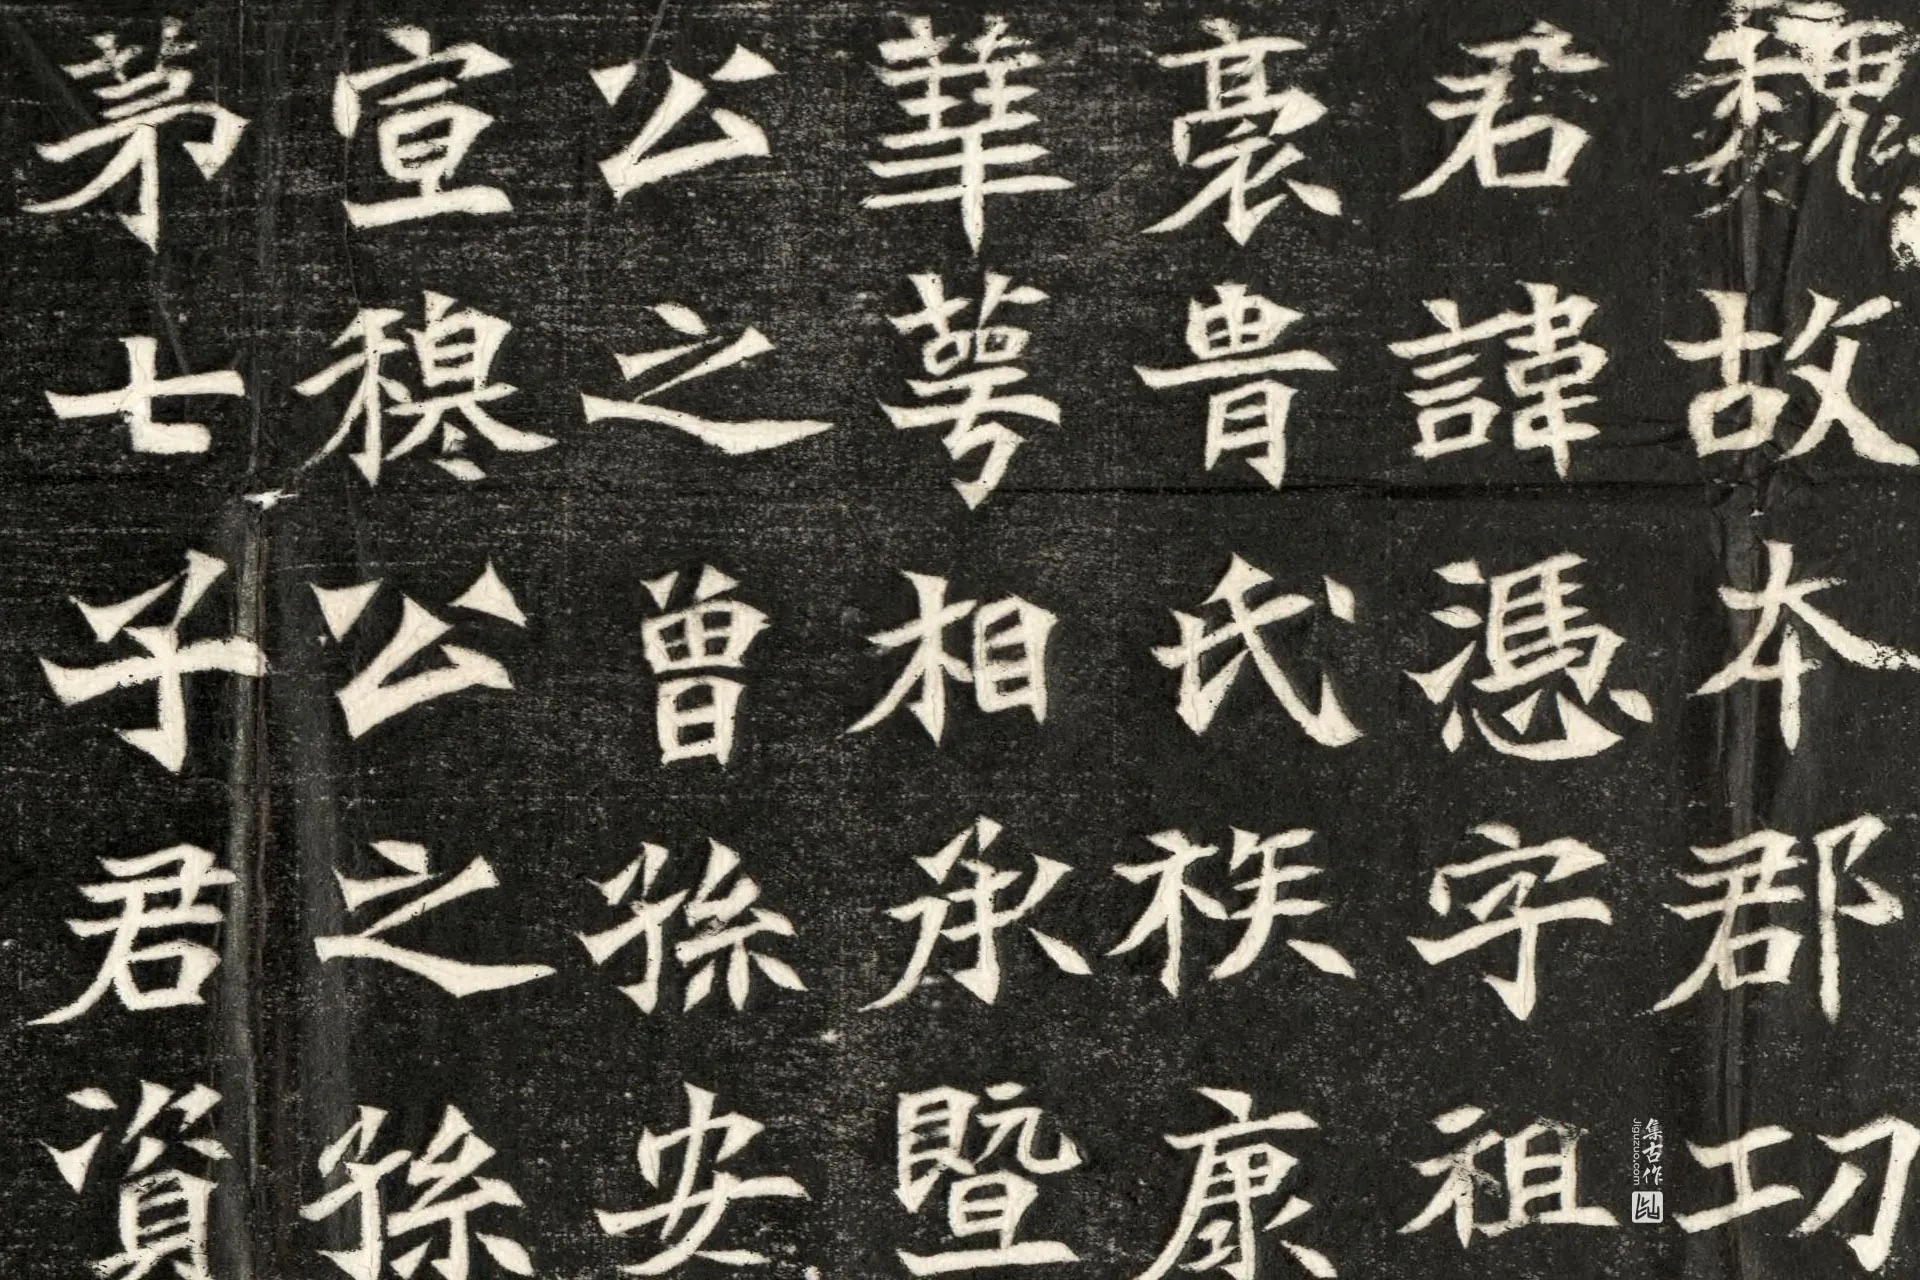 魏故本郡功
君諱憑字祖
裔胄氏族康
華萼相承暨
公之曾孫安
宣穆公之孫
茅七子君資
集古作
jiguzuo.com